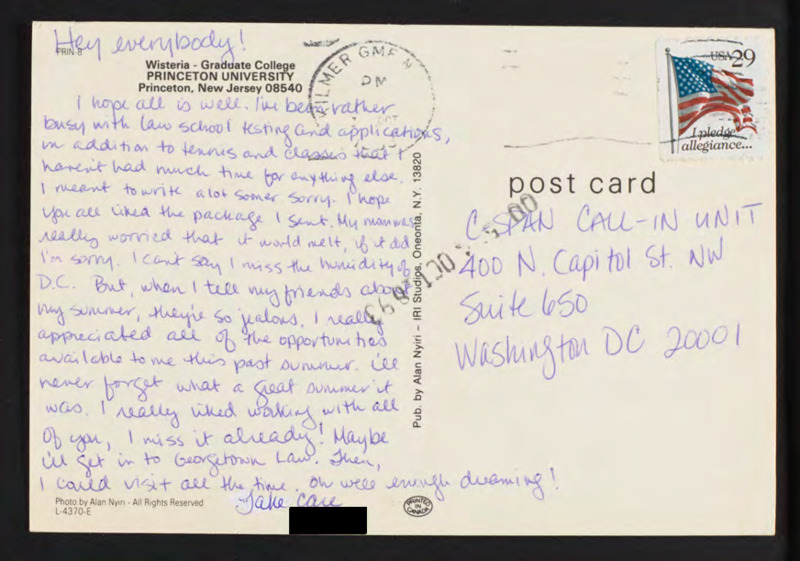 Hey everybody!
PRIN-B
Wisteria - Graduate College
PRINCETON UNIVERSITY
Princeton, New Jersey 08540
I hope all is well. I've been rather
busy with law school testing and applications,
in addition to tennis and classes that I
haven't had much time for anything else.
I meant to write a lot sooner sorry. I hope
you all liked the package I sent. My mom was
really worried that it would melt, if it did
I'm sorry. I can't say I miss the humidity of
D.C. But, when I tell my friends about
my summer, they're so jealous. I really
appreciated all of the opportunities
available to me this past summer. I'll
never forget what a great summer it
was. I really liked working with all
of you, I miss it already! Maybe
I'll get in to Georgetown Law. Then,
I could visit all the time. Oh well enough dreaming!
Take Care
Photo by Alan Nyiri - All Rights Reserved
L-4370-E
Pub. by Alan Nyiri – IRI Studios, Oneonta, N.Y. 13820
PRINTED IN CANADA
KILMER GMF N
PM
OCT
USA 29
I pledge
allegiance...
post card
OCT
C-SPAN CALL-IN UNIT
400 N. Capitol St. NW
Suite 650
Washington DC 20001